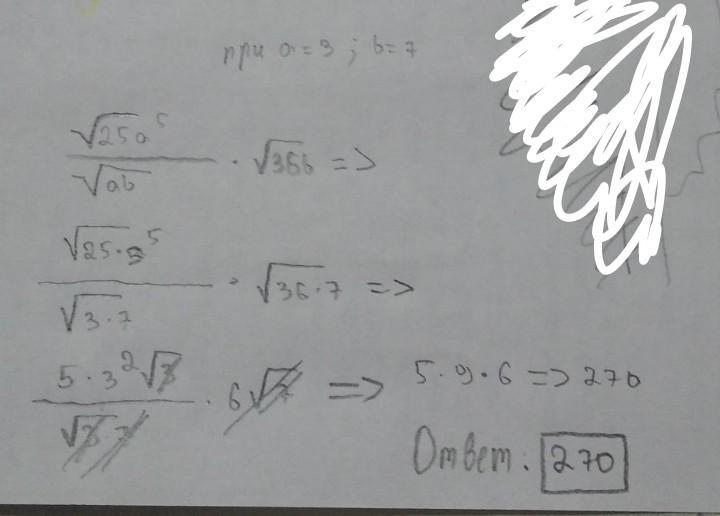 при a = 3 ; b = 7
√25a⁵ / √ab · √36b =>
√25·3⁵ / √3·7 · √36·7 =>
5·3²√3 / √3·7 · 6√7 => 5·9·6 => 270
Ответ: 270